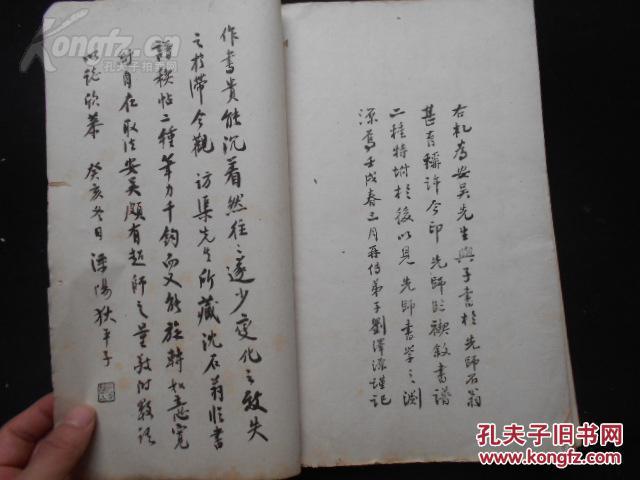 右札為安吳先生與子書於先師石翁
甚有稱許今印先師臨禊敘書譜
二種特坿於後以見先師書學之淵
源焉壬戌春三月再傳弟子劉澤源謹記
作書貴能沉着然往之遂少變化之致失
之於滯今觀訪渠先生所藏沈石翁臨書
譜禊帖二種筆力千鈞而又能旋轉如意寬
可自在取法安吳頗有超師之量敬附數語
以誌欣慕 癸亥冬日 溧陽狄平子
Kongfz.com
孔夫子旧书网
孔夫子旧书网
KONGFZ.COM